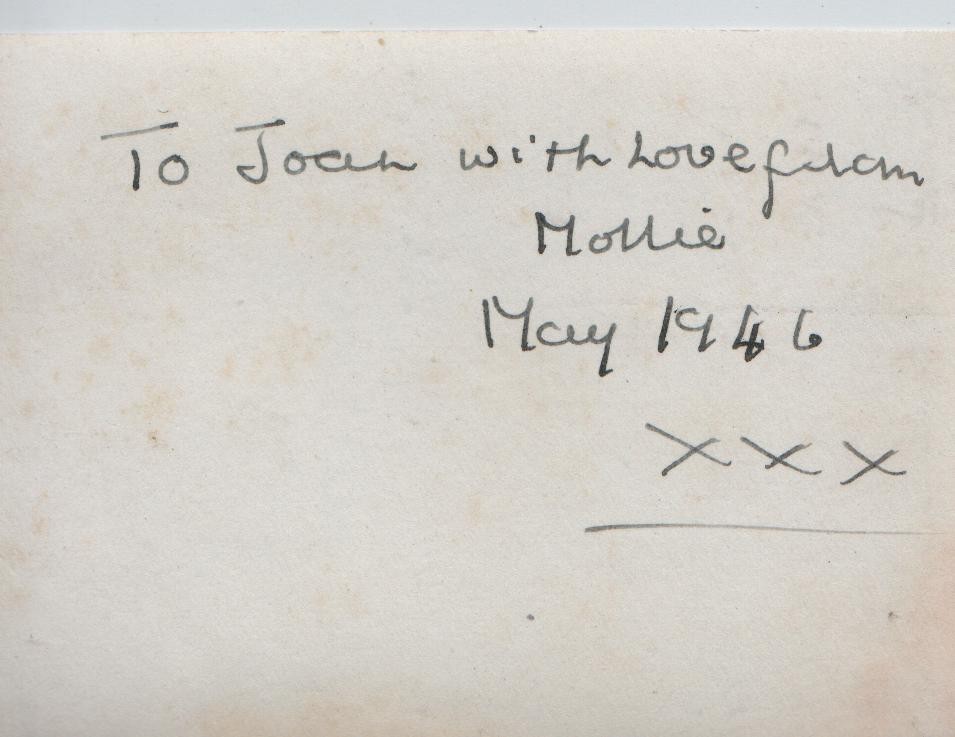 To Joan with Love from
Mollie
May 1946
XXX